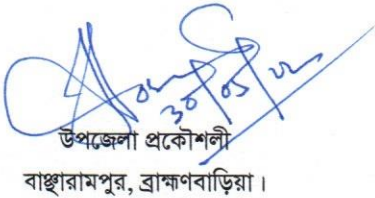 ৩০/০৫/২২
উপজেলা প্রকৌশলী
বাঞ্ছারামপুর, ব্রাহ্মণবাড়িয়া।